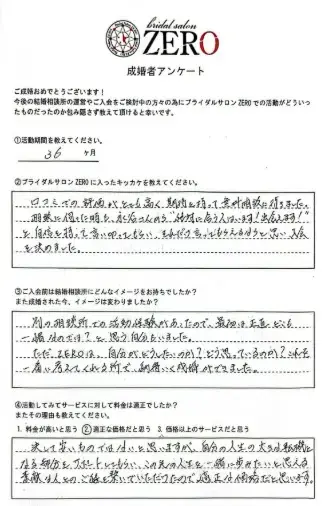 bridal salon
ZERO
成婚者アンケート
ご成婚おめでとうございます！
今後の結婚相談所の運営やご入会をご検討中の方々の為にブライダルサロン ZERO での活動がどういっ
たものだったのか包み隠さず教えて頂けると幸いです。
①活動期間を教えてください。
36 ヶ月
②ブライダルサロン ZERO に入ったキッカケを教えてください。
口コミでの評価がとても高く、期待を持って無料相談に行きました。
相談に伺った時も "絶対に合う人はいます！出会えます！"
と自信を持って言い切ってもらい、そんだけ言ってもらえるならと思い入会
を決めました。
③ご入会前は結婚相談所にどんなイメージをお持ちでしたか？
また成婚された今、イメージは変わりましたか？
別の相談所での活動経験があったので、最初は正直どこも
一緒なのでは？と思う自分もいました。
ただ、ZEROは、自分がどうしたいのか？どう思っているのか？これを
一番に考えてくれる所で、納得いく成婚ができました。
④活動してみてサービスに対して料金は適正でしたか？
またその理由も教えてください。
1. 料金が高いと思う 2. 適正な価格だと思う 3. 価格以上のサービスだと思う
決して安いものではないと思いますが、自分の人生の大きな転機と
なる部分をサポートしてもらい、この先の人生を一緒に歩みたいと思える
素敵な人とのご縁を繋いでいただけたので適正な価格だと思います。